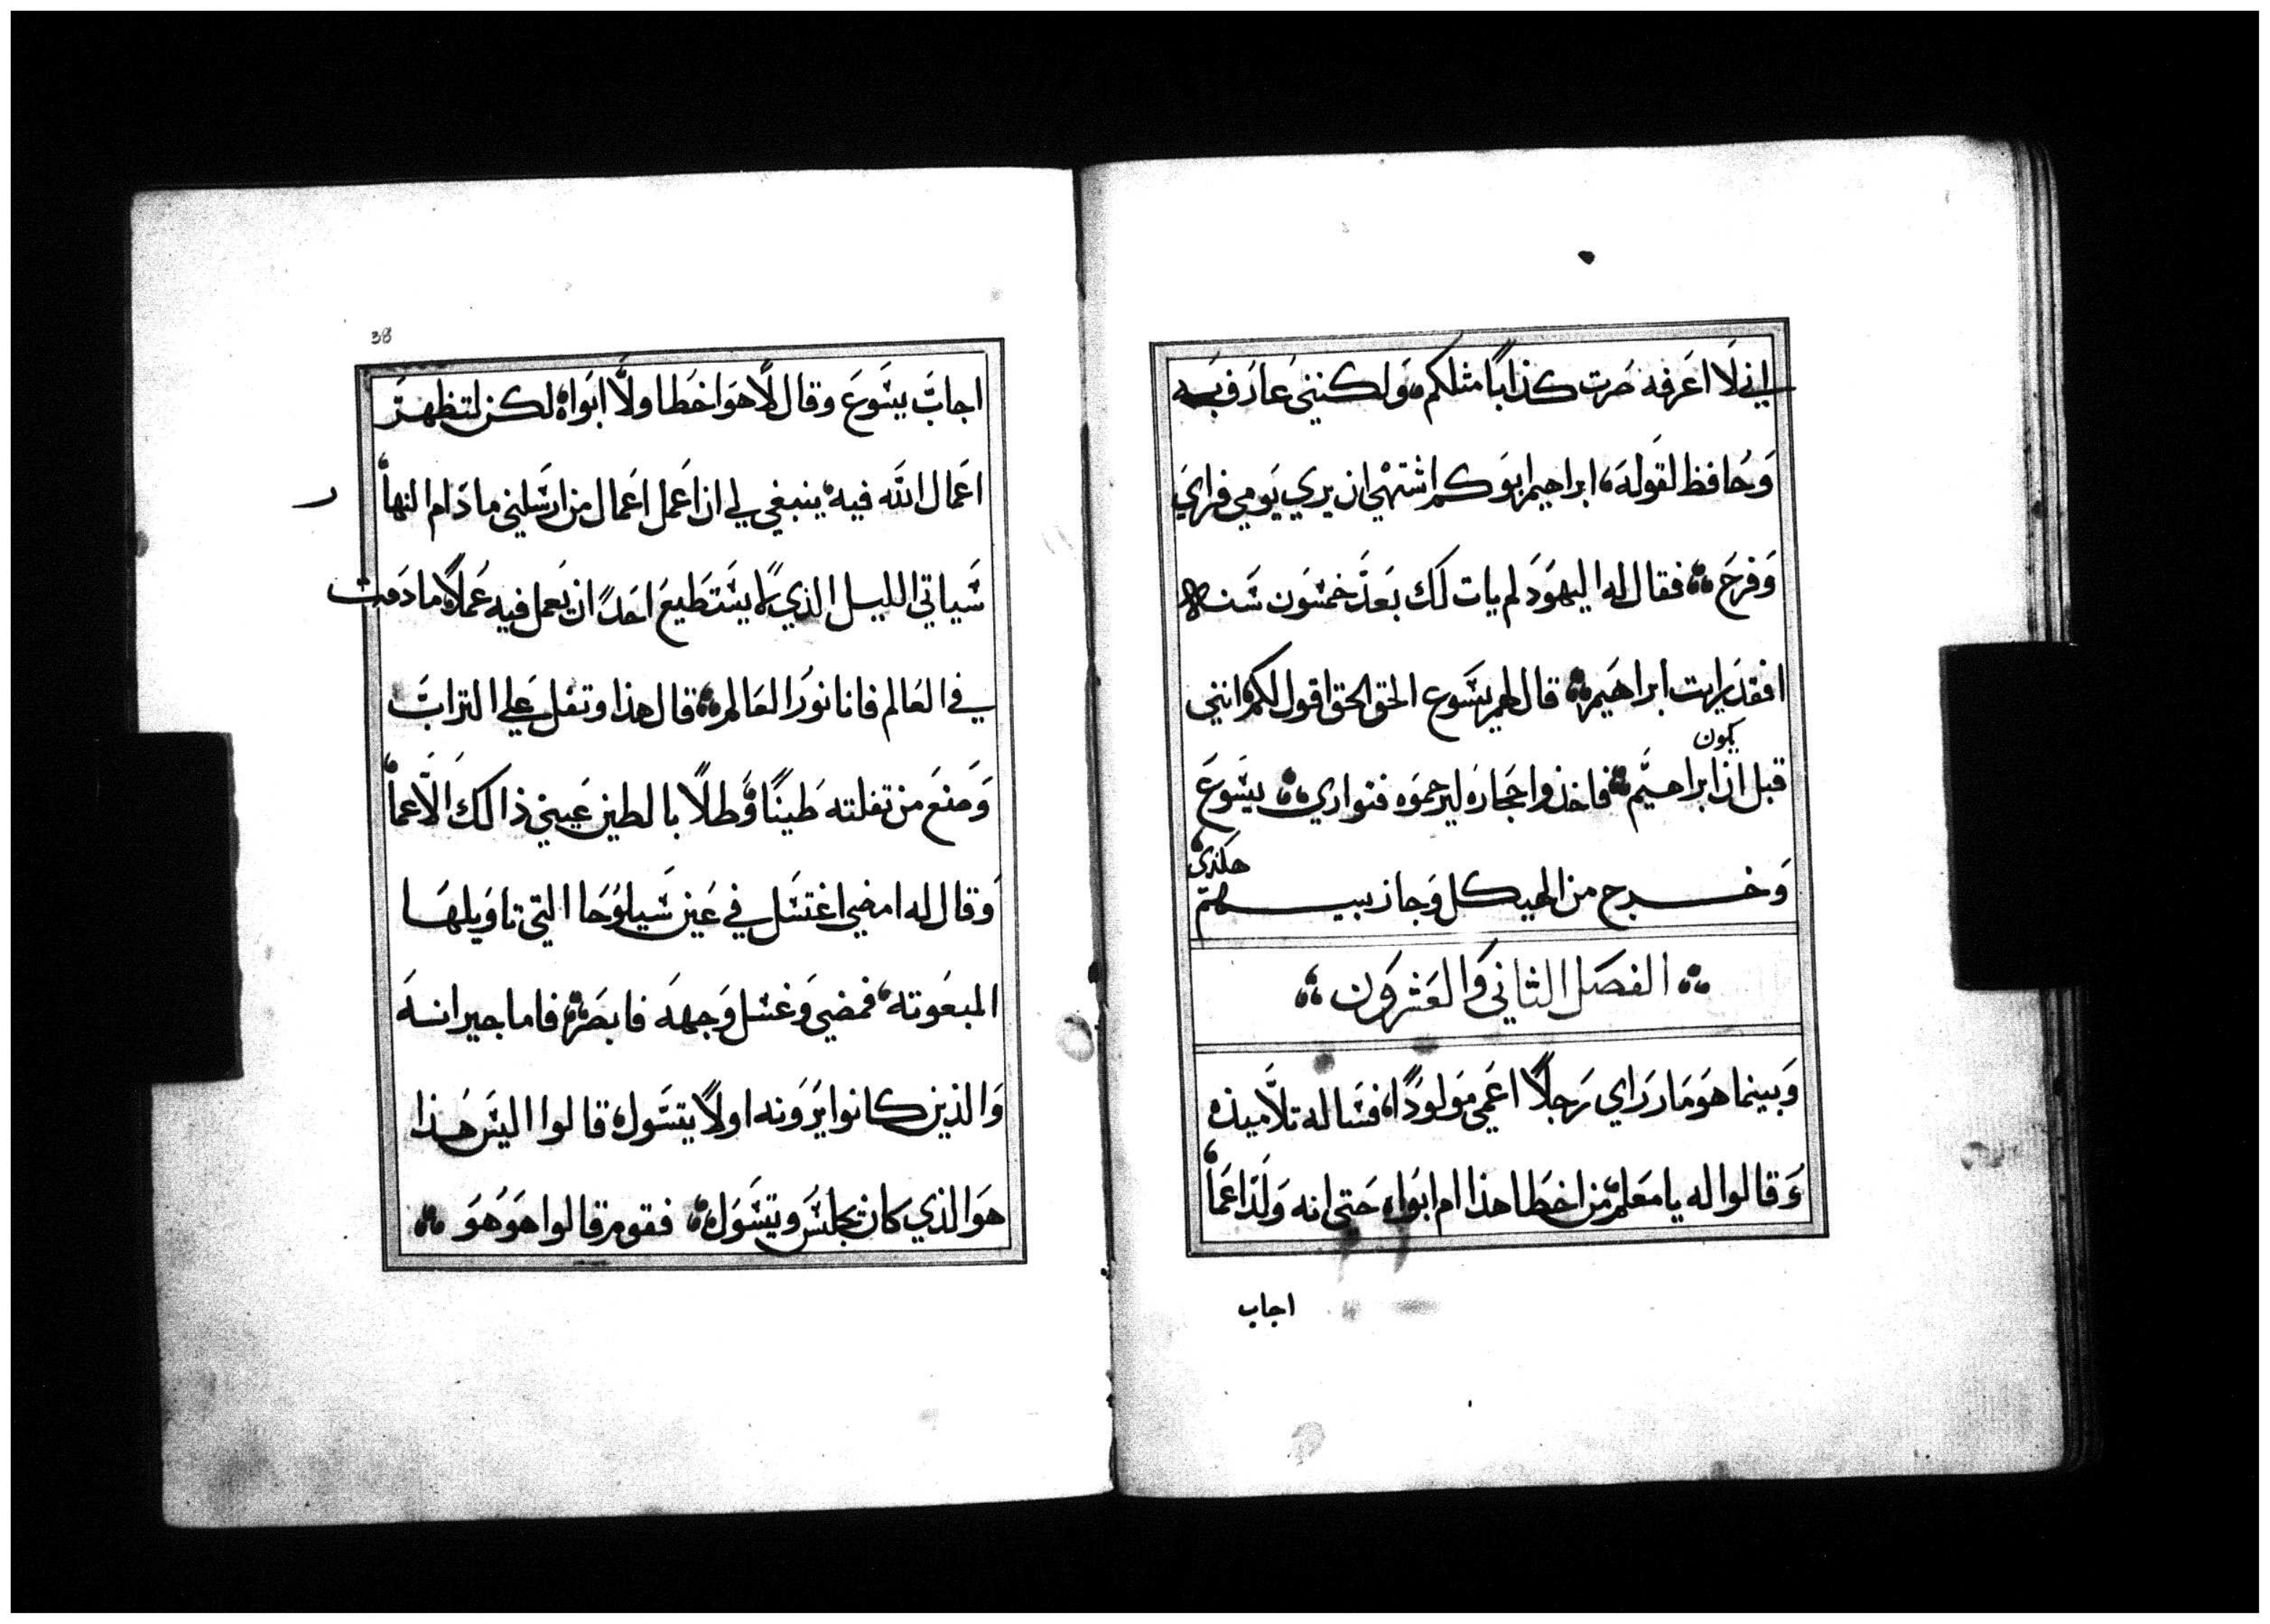 اني لا اعرفه صرت كذابًا مثلكم، ولكنني عارف به
وحافظ لقوله، ابراهيم ابوكم اشتهي ان يري يومي فراي
وفرح ⁘ فقال له اليهود لم يات لك بعد خمسون سنه
افقد رايت ابراهيم ⁘ قال لهم يسوع الحق الحق اقول لكم انني
يكون
قبل ان ابراهيم ⁘ فاخذوا حجاره ليرجموه فتواري ⁘ يسوع
وخرج من الهيكل وجاز بينهم
هكذي
⁘ الفصل الثاني والعشرون ⁘
وبينما هو مار راي رجلًا اعمي مولودًا، فساله تلاميذه
وقالوا له يا معلم من اخطا هذا ام ابواه حتي انه ولد اعما
اجاب
38
اجاب يسوع وقال لا هو اخطا ولا ابواه لكن لتظهر
اعمال الله فيه، ينبغي لي ان اعمل اعمال من ارسلني ما دام النها
ر
سياتي الليل الذي لا يستطيع احدًا ان يعمل فيه عملًا ما دمت
في العالم فانا نور العالم ⁘ قال هذا وتفل علي التراب
وصنع من تفلته طينًا وطلا بالطين عيني ذالك الاعما
وقال له امضي اغتسل في عين سيلوحا التي تاويلها
المبعوته، فمضي وغسل وجهه فابصر ⁘ فاما جيرانه
والذين كانوا يرونه اولًا يتسول، قالوا اليس هذا
هو الذي كان يجلس ويتسول ⁘ فقوم قالوا هو هو ⁘